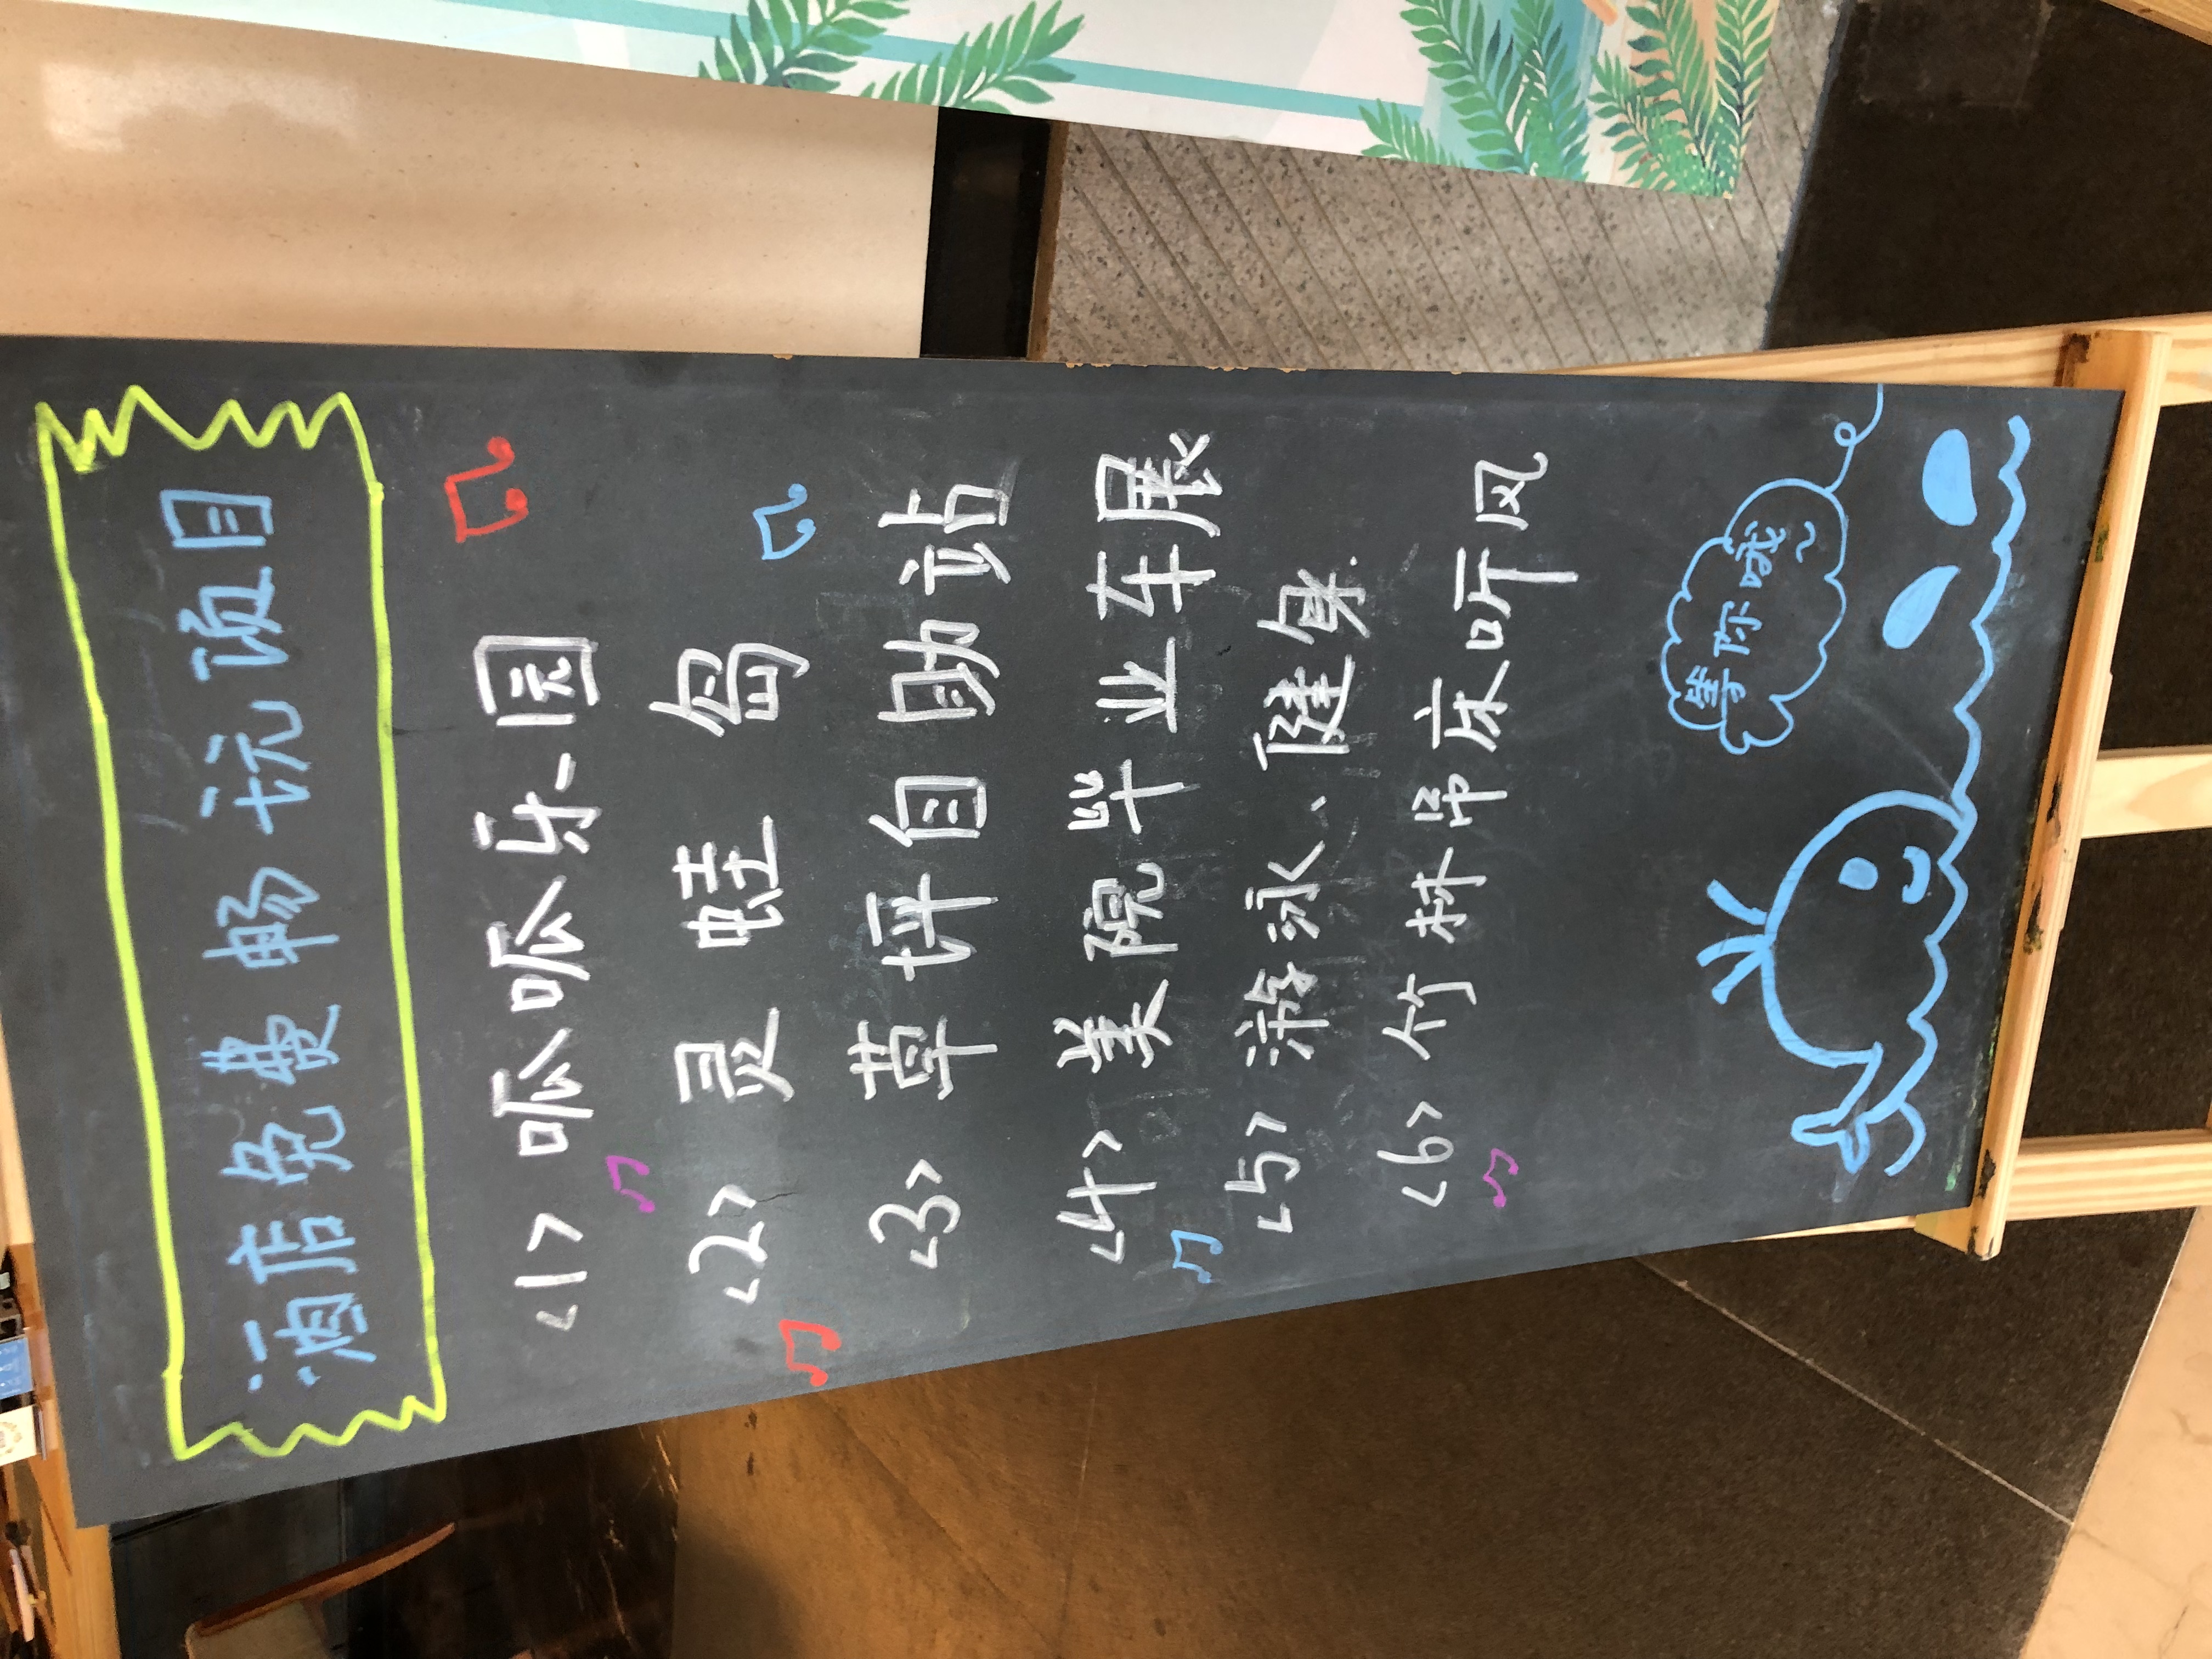 酒店免费畅玩项目
<1> 呱呱乐园
<2> 灵蛙岛
<3> 草坪自助站
<4> 美院毕业车展
<5> 游泳、健身
<6> 竹林吊床听风
等你哦~